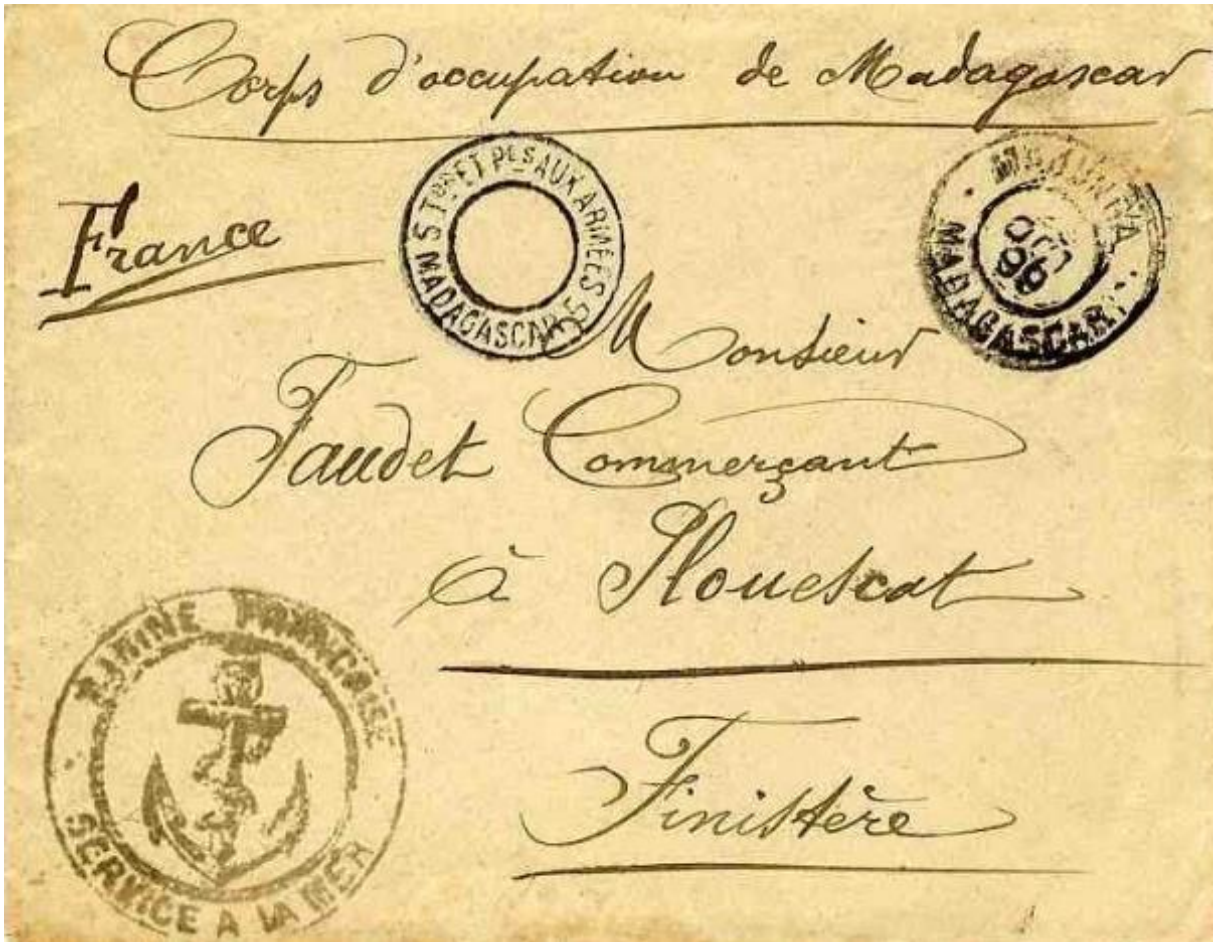 Corps d'occupation de Madagascar
France
S. TʳᵉˢET PᵉˢAUX ARMÉES
MADAGASCAR 5
MAJUNGA
MADAGASCAR
96
Monsieur
Faudet Commerçant
à Plouescat
Finistère
MARINE FRANÇAISE
SERVICE A LA MER